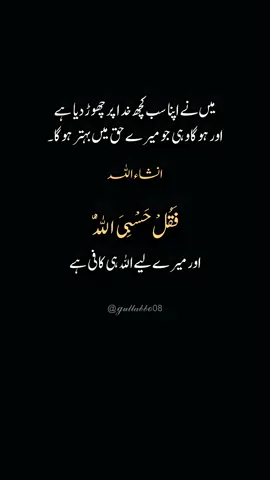 میں نے اپنا سب کچھ خدا پر چھوڑ دیا ہے
اور ہو گا وہی جو میرے حق میں بہتر ہو گا۔
انشاء اللہ
فَقُلْ حَسْبِیَ اللّٰہُ
اور میرے لیے اللہ ہی کافی ہے
@gullabbo08